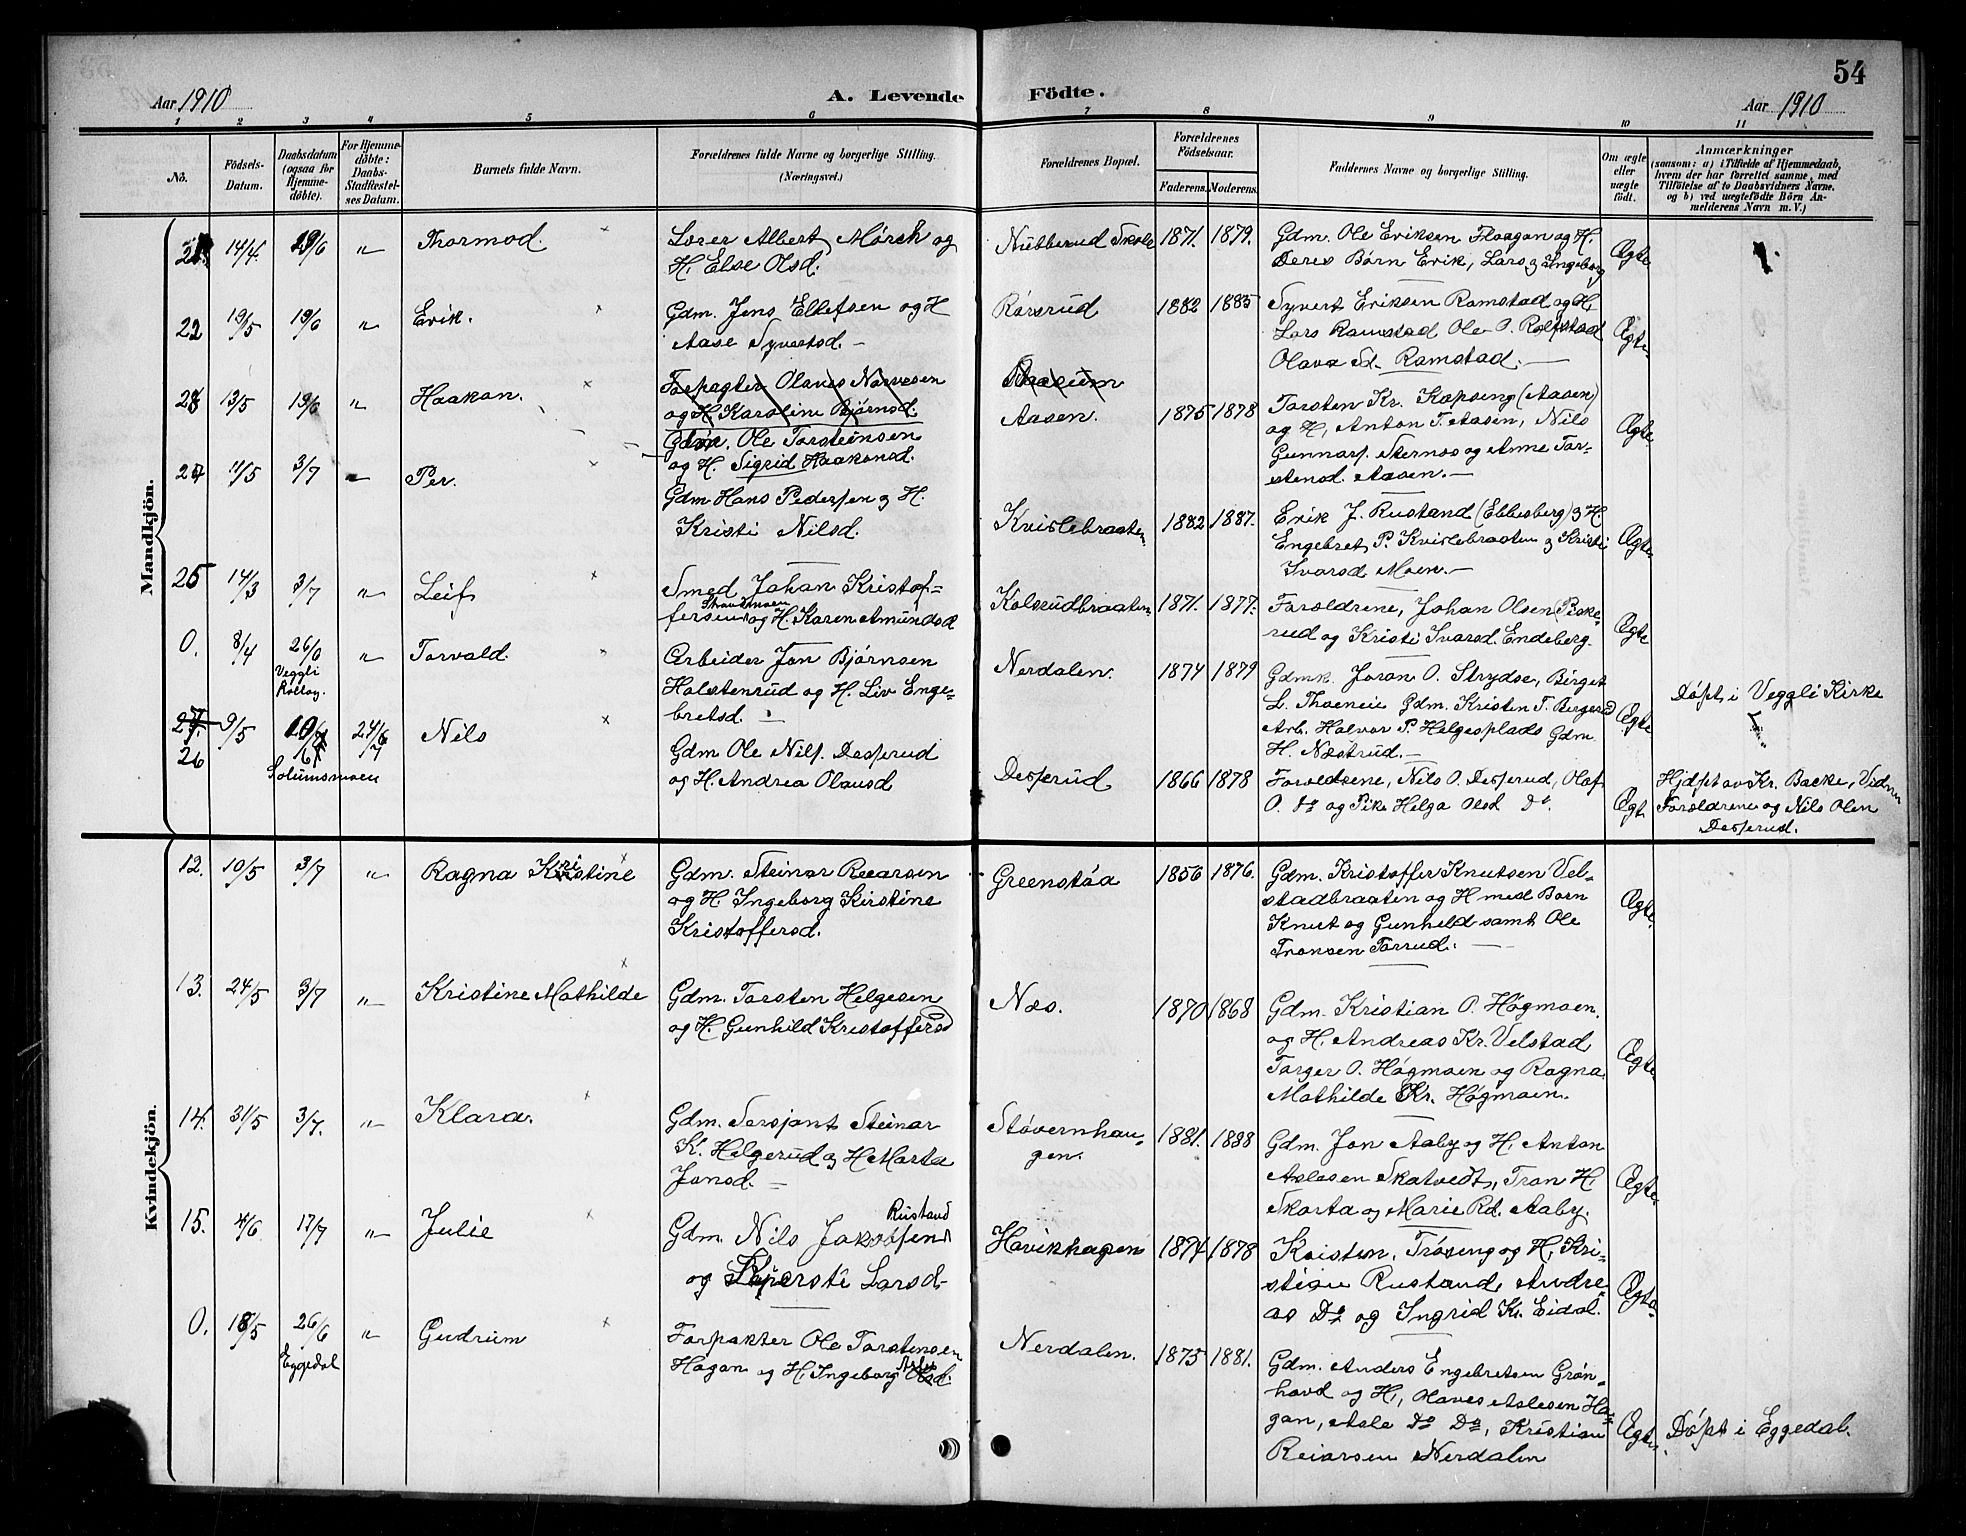 54
Aar 1910
A. Levende Födte.
Aar 1910
1 2 3 4 5 6 7 8 9 10 11
No.
Födsels-Datum.
Daabsdatum (ogsaa for Hjemme-döbte).
For Hjemme-döbte: Daabs-Stadfæstel-ses Datum.
Barnets fulde Navn.
Forældrenes fulde Navne og borgerlige Stilling.
(Næringsvei.)
Forældrenes Bopæl.
Forældrenes Födselsaar.
Faderens. Moderens.
Faddernes Navne og borgerlige Stilling.
Om ægte eller uægte födt.
Anmærkninger
(saasom: a) i Tilfælde af Hjemmedaab,
hvem der har forrettet samme, med
Tilföielse af to Daabsvidners Navne.
og b) ved uægtefödte Börn An-
melderens Navn m. V.)
Mandkjön.
21. 14/4. 19/6 " Thormod. Lærer Albert Mörch og
H. Else Olsd.
Nubberud Skole 1871. 1879.
Gdm. Ole Eriksen Flaagan og H.
Deres Børn Erik, Lars & Ingeborg
Ægte
22 19/5 19/6 " Erik. Gdm. Jens Ellefsen og H
Aase Syvertsd. -
Rørsrud 1882 1885
Syvert Eriksen Ramstad og H,
Lars Ramstad Ole O. Rolfstad
Olava Sd. Ramstad. -
Ægte
23 13/5 19/6 " Haakon. Forpagter Olaves Narvesen
og H Karoline Bjørnsd.
Gdm. Ole Torsteinsen
og H. Sigrid Haakonsd.
Aasen. 1875 1878
Torsten Kr. Kopseng (Aasen)
og H, Anton T. Aasen, Nils
Gunnars. Sternes og Anne Tor-
stensd. Aasen. -
Ægte
24 11/5 3/7 Per. Gdm Hans Pedersen & H.
Kristi Nilsd.
Kvislebraaten 1882 1887.
Erik J. Rustand (Ebbesberg) & H.
Engebret P. Kvislebraaten & Kristi
Ivarsd. Moen. -
Ægte
25 14/3 3/7 " Leif. Smed Johan Kristof-
fersen Strandmoen og H. Karen Amundsd
Kolsrudbraaten 1871. 1877.
Forældrene, Johan Olsen Bake-
rud og Kristi Ivarsd. Endeberg.
Ægte
0. 8/4 26/6 Veggli Rollag. " Torvald. Arbeider Jon Bjørnsen
Holstenrud og H. Liv Enge-
bretsd. -
Nerdalen. 1874 1879
Gdmk. Joran O. Strydse, Birget
L. Thoeneie Gdm. Kristen T. Bergerud
Arb. Halvor P. Helgesplads Gdm
H. Næstrud. -
Ægte
Döpt i Veggli Kirke
27. 26 9/5 Solumsmoen 24/7 Nils Gdm Ole Nils. Desserud
og H. Andrea Olausd
Desserud 1866 1878
Forældrene, Nils O. Desserud, Olaf
O. Do og Pike Helga Olsd Do.
Ægt.
Hjdpt av Kr. Backe, Vidner
Forældrene og Nils Olsen
Desserud.
Kvindekjön.
12. 10/5 3/7 " Ragna Kristine Gdm. Steinar Reiarsen
og H. Ingeborg Kirstine
Kristoffersd.
Greenstøa 1856 1876.
Gdm. Kristoffer Knutsen Vel-
stadbraaten og H med Børn
Knut og Gunhild samt Ole
Tronsen Torrud. -
Ægte
13. 24/5 3/7 " Kristine Mathilde Gdm. Torsten Helgesen
og H Gunhild Kristoffersd
Næs. 1870 1868
Gdm. Kristian O. Høgmoen.
og H. Andreas Kr. Velstad
Torger O. Høgmoen og Ragna
Mathilde Kr. Høgmoen.
Ægte
14. 31/5 3/7. " Klara. Gdm. Sersjant Steinar
K. Helgerud og H Marta
Jonsd. -
Støvernhau-
gen. 1881. 1888
Gdm. Jon Aaby og H, Anton
Aslesen Skatvedt, Tron H.
Skarta og Marie Rd. Aaby.
Ægte
15. 4/6 17/7 " Julie Gdm. Nils Jakobsen Rustand
og Larsd-
Havikhagen 1874 1878
Kristen. Trøseng og H, Kri-
stian Rustand, Andre-
as Do og Ingrid Kr. Eidal.
Ægte
0. 18/5 26/6 Eggedal " Gudrun Forpakter Ole Torstensen
Hagan og H. Ingeborg
Nerdalen. 1875 1881.
Gdm. Anders Engebretsen Grøn-
hovd og H, Olaves Aslesen Ha-
gan, Asle Do Do, Kristian
Reiarsen Nerdalen
Ægte
Döpt i Eggedal.